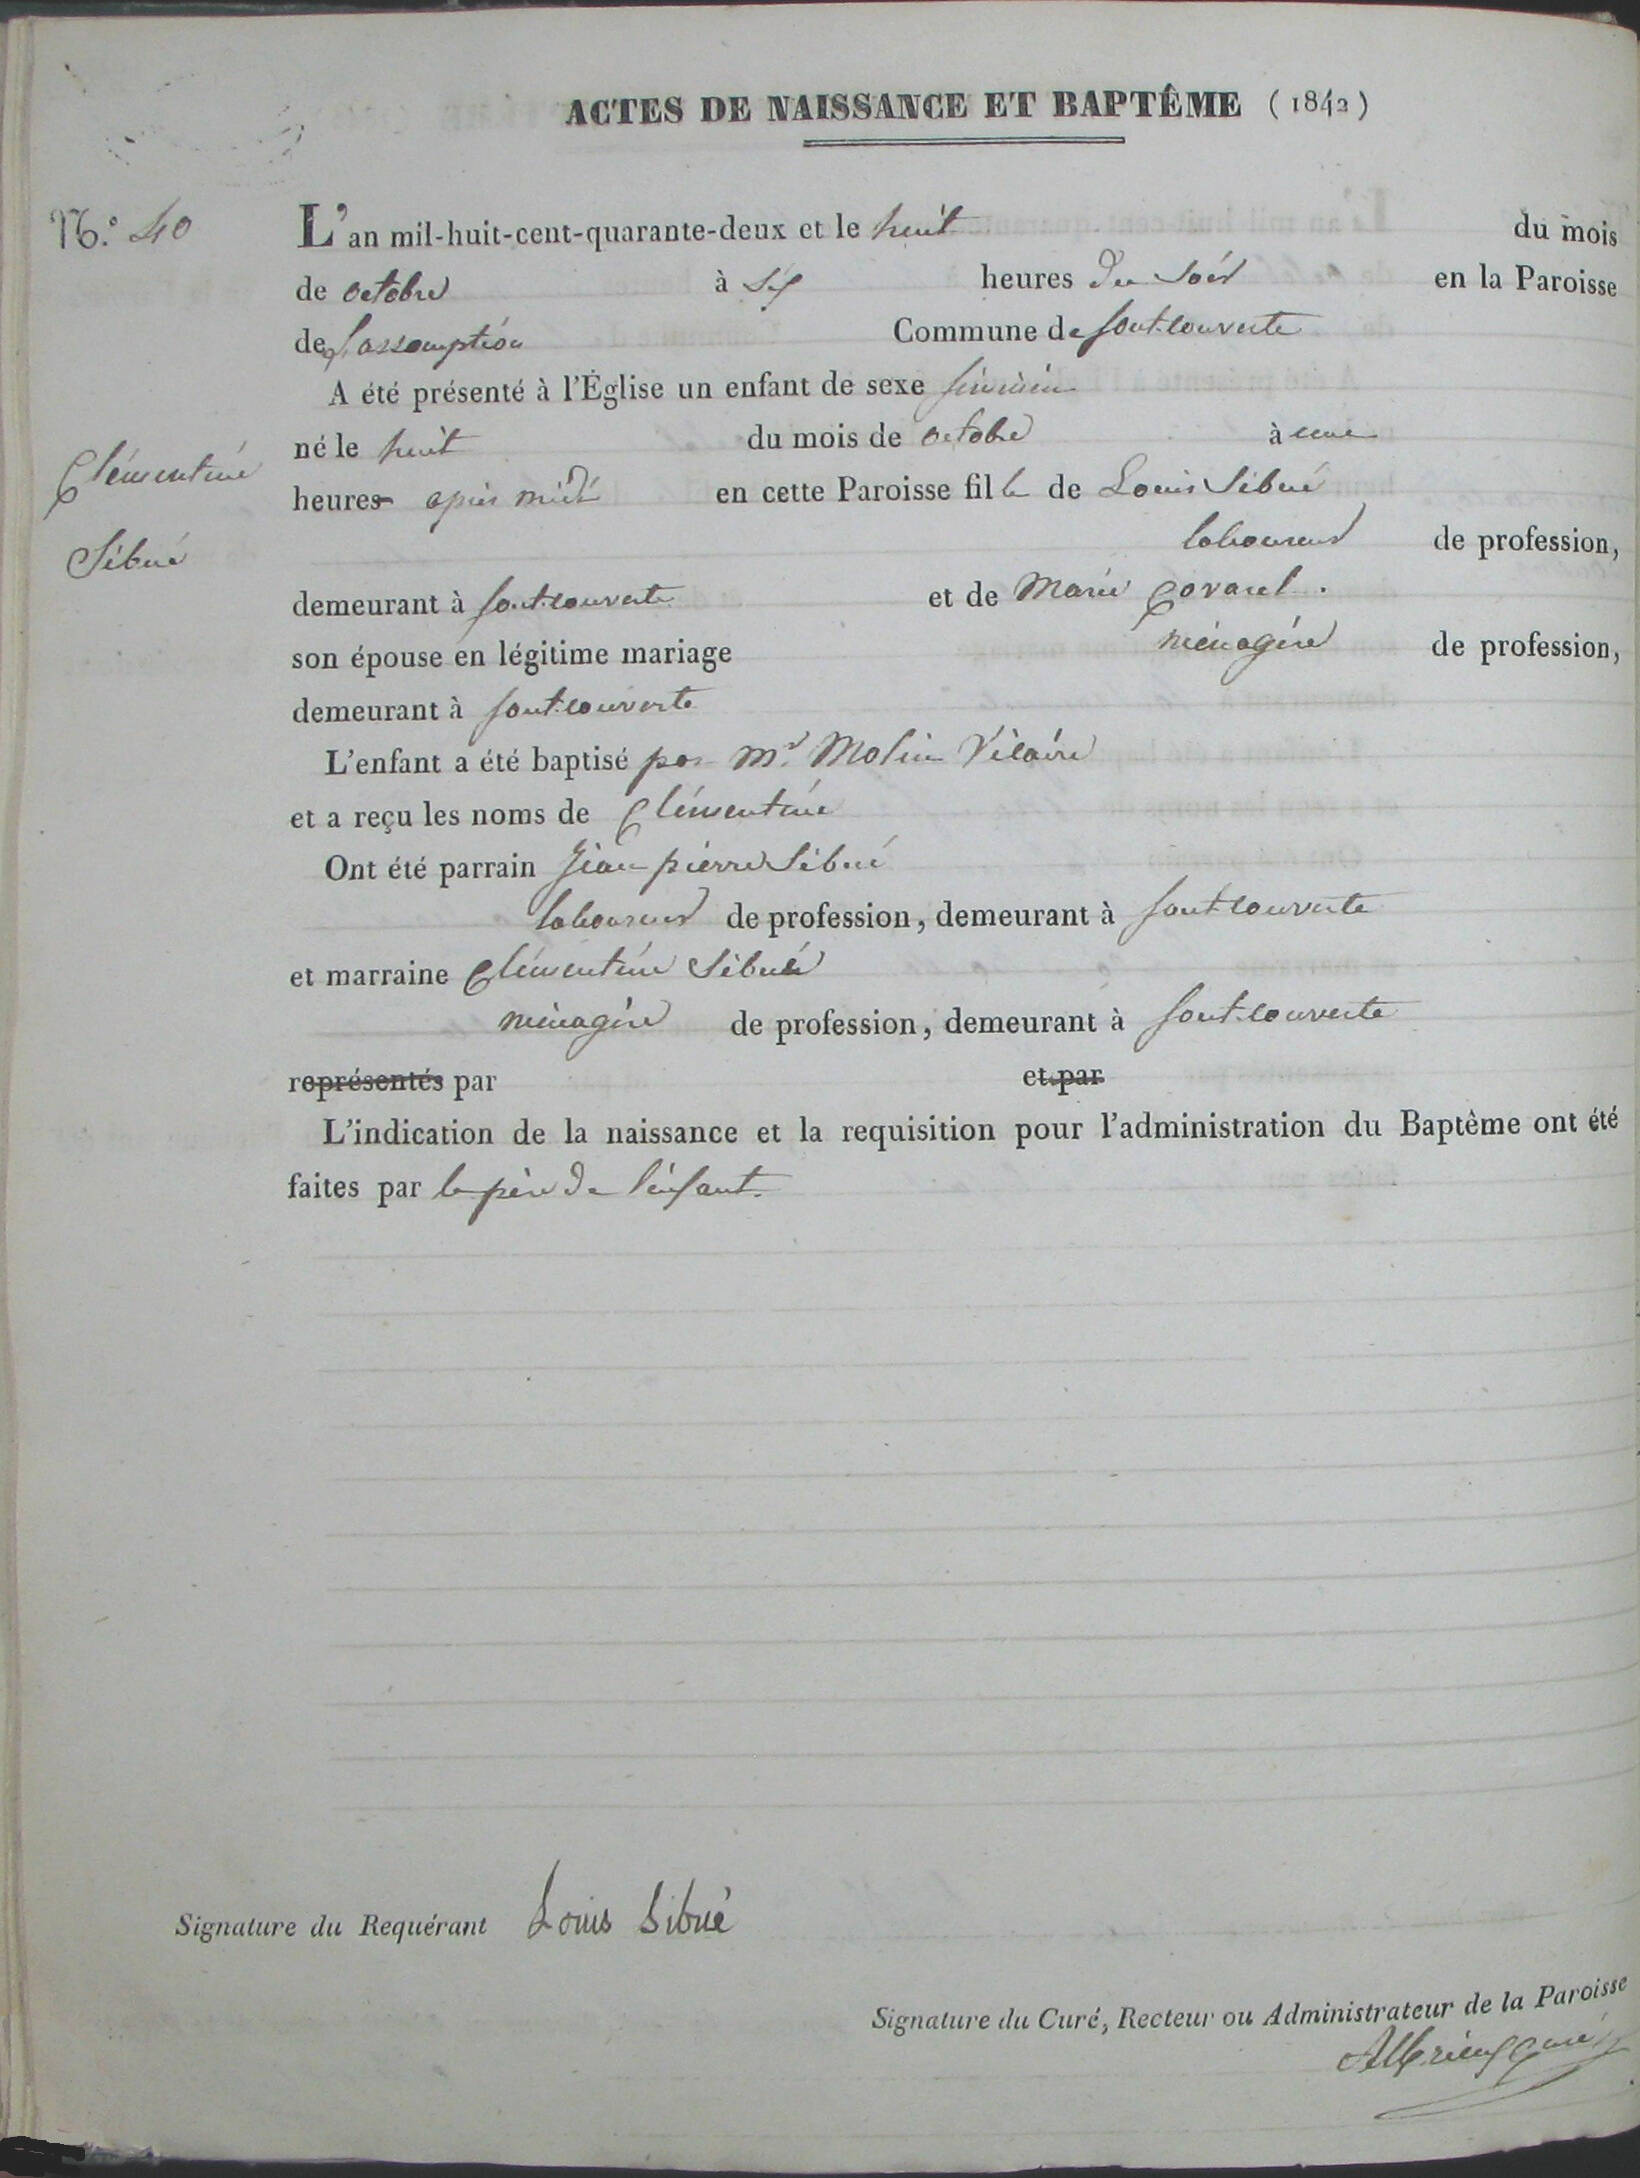 ACTES DE NAISSANCE ET BAPTÊME (1842)
N.º 40
L'an mil-huit-cent-quarante-deux et le huit du mois
de octobre à six heures du soir en la Paroisse
de l'assomption Commune de fontcouverte
A été présenté à l'Église un enfant de sexe féminin
né le huit du mois de octobre à une
Clémentine
heures après midi en cette Paroisse fille de Louis Sibué
Sibué
laboureur de profession,
demeurant à fontcouverte et de Marie Covarel.
son épouse en légitime mariage ménagère de profession,
demeurant à fontcouverte
L'enfant a été baptisé par mr Molin Vicaire
et a reçu les noms de Clémentine
Ont été parrain Jean pierre Sibué
laboureur de profession, demeurant à fontcouverte
et marraine Clémentine Sibué
ménagère de profession, demeurant à fontcouverte
représentés par et par
L'indication de la naissance et la requisition pour l'administration du Baptême ont été
faites par le père de l'enfant.
Signature du Requérant Louis Sibué
Signature du Curé, Recteur ou Administrateur de la Paroisse
Albrieux Curé